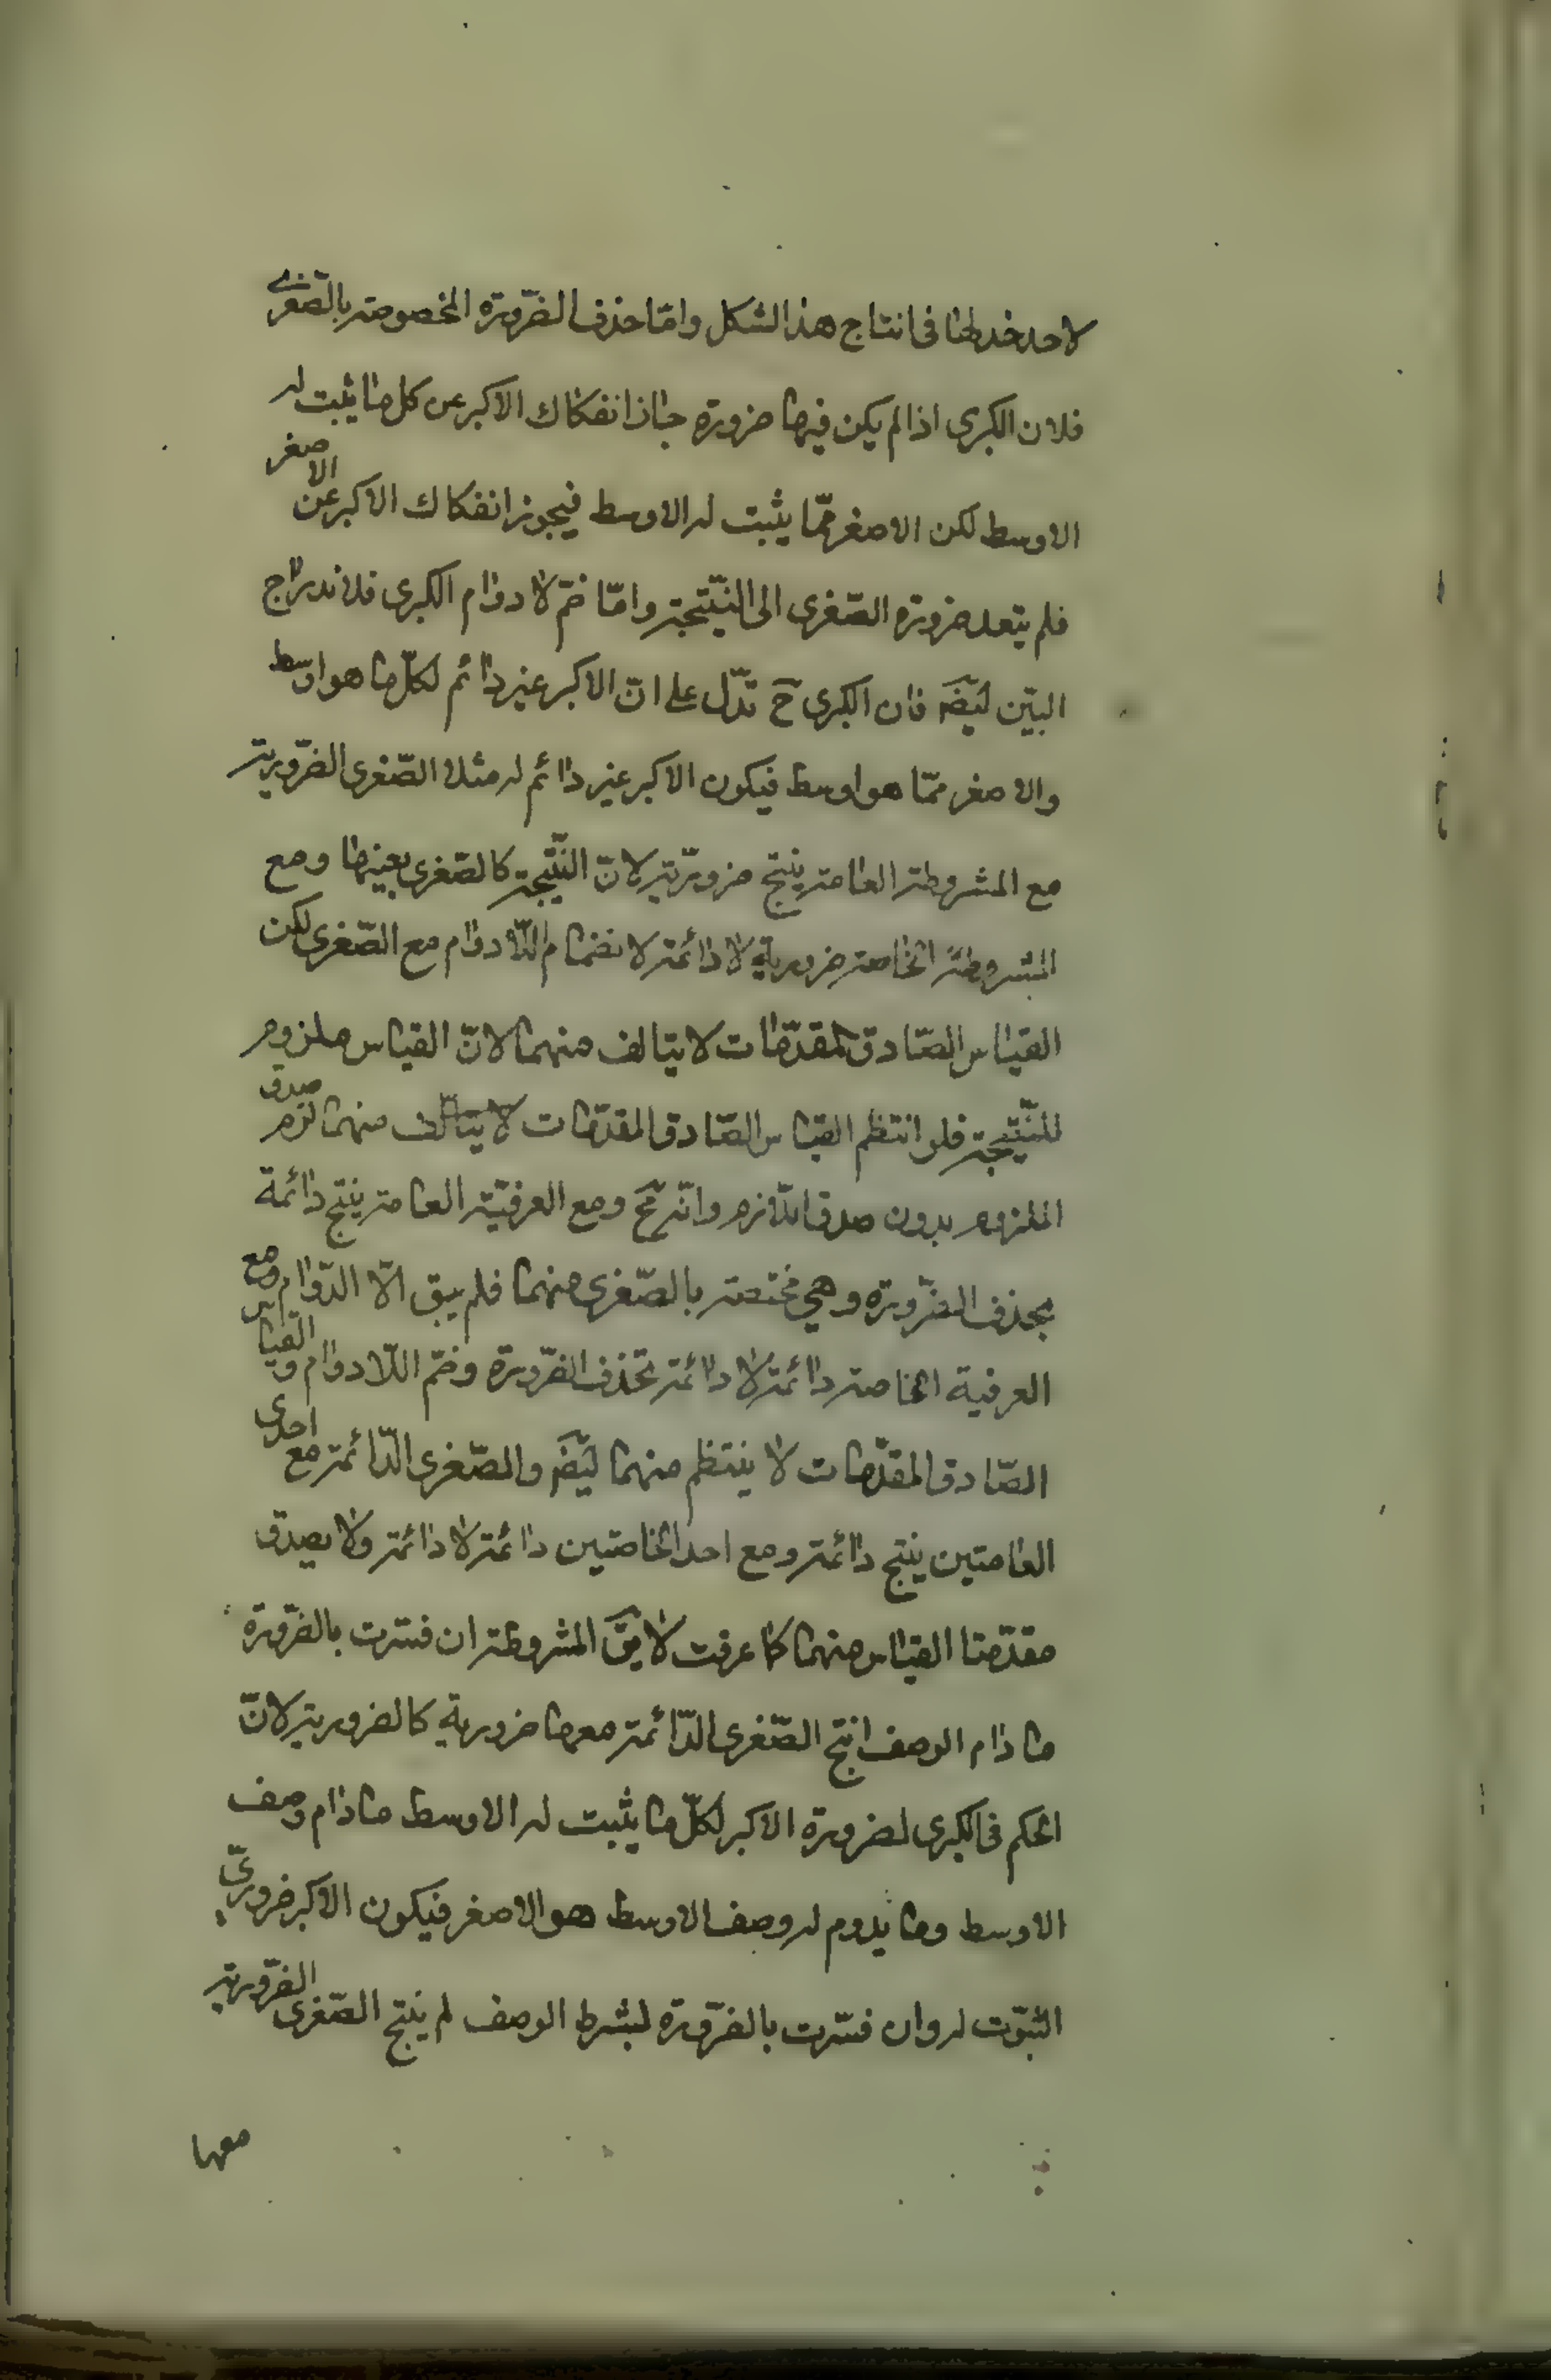 لاحد خدلهنا فى انتاج هذا الشكل وامّا حذف الضّرورة المخصوصة بالصّغرى
فلان الكبرى اذا لم يكن فيها ضرورة جاز انفكاك الاكبر عن كل ما يثبت له
الاوسط لكن الاصغر ممّا يثبت له الاوسط فيجوز انفكاك الاكبر عن الاصغر
فلم يتعد ضرورة الصّغرى الى النّتيجة وامّا ضمّ لا دوام الكبرى فلاندراج
البيّن ايضَ فان الكبرى حَ تدّل على انّ الاكبر غير دائم لكلّ ما هو اوسط
والاصغر ممّا هو اوسط فيكون الاكبر غير دائم له مثلا الصّغرى الضّروريّة
مع المشروطة العامة ينتج ضروريّة لانّ النّتيجة كالصّغرى بعينها ومع
المشروطة الخاصة ضرورية لا دائمة لانضمام اللّادوام مع الصّغرى لكن
القياس الصّادق المقدّمات لا يتالف منهما لانّ القياس ملزوم
للنّتيجة فلو انتظم القياس الصّادق المقدّمات لا يتالّف منهما لزم صدق
الملزوم بدون صدق اللّازم وانّه مح ومع العرفيّة العامة ينتج دائمة
بحذف الضّرورة وهى مختصة بالصّغرى منهما فلم يبق الّا الدّوام ومع
العرفية الخاصة دائمة لا دائمة بحذف الضّرورة وضمّ اللّادوام والقياس
الصّادق المقدّمات لا ينتظم منهما ايضَ والصّغرى الدّائمة مع احدى
العامتين ينتج دائمة ومع احد الخاصتين دائمة لا دائمة ولا يصدق
مقدّمتا القياس منهما كما عرفت لا يقَ المشروطة ان فسّرت بالضّرورة
ما دام الوصف انتج الصّغرى الدّائمة معها ضرورية كالضرورية لانّ
الحكم فى الكبرى لضرورة الاكبر لكلّ ما يثبت له الاوسط ما دام وصف
الاوسط وما يدوم له وصف الاوسط هو الاصغر فيكون الاكبر ضروريّ
الثبّوت له وان فسّرت بالضّرورة بشرط الوصف لم ينتج الصّغرى الضّرورية
معها